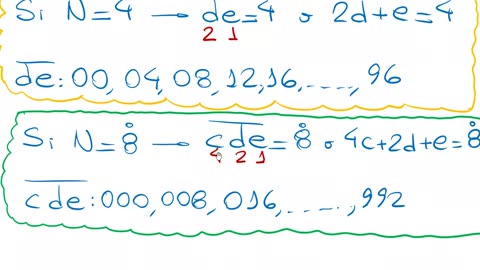 Si N=4 → de=4 o 2d+e=4
2 1
de: 00, 04, 08, 12, 16, ...., 96
Si N=8̊ → cde=8̊ o 4c+2d+e=8̊
4 2 1
cde: 000, 008, 016, ......, 992